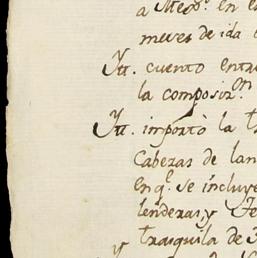 a Mexco. en e
meses de ida
Ytt. cuento enta
la composizon.
Ytt. importò la t
Cabezas de lan
en q.e se incluye
lenderas, y Te
y trasquila de